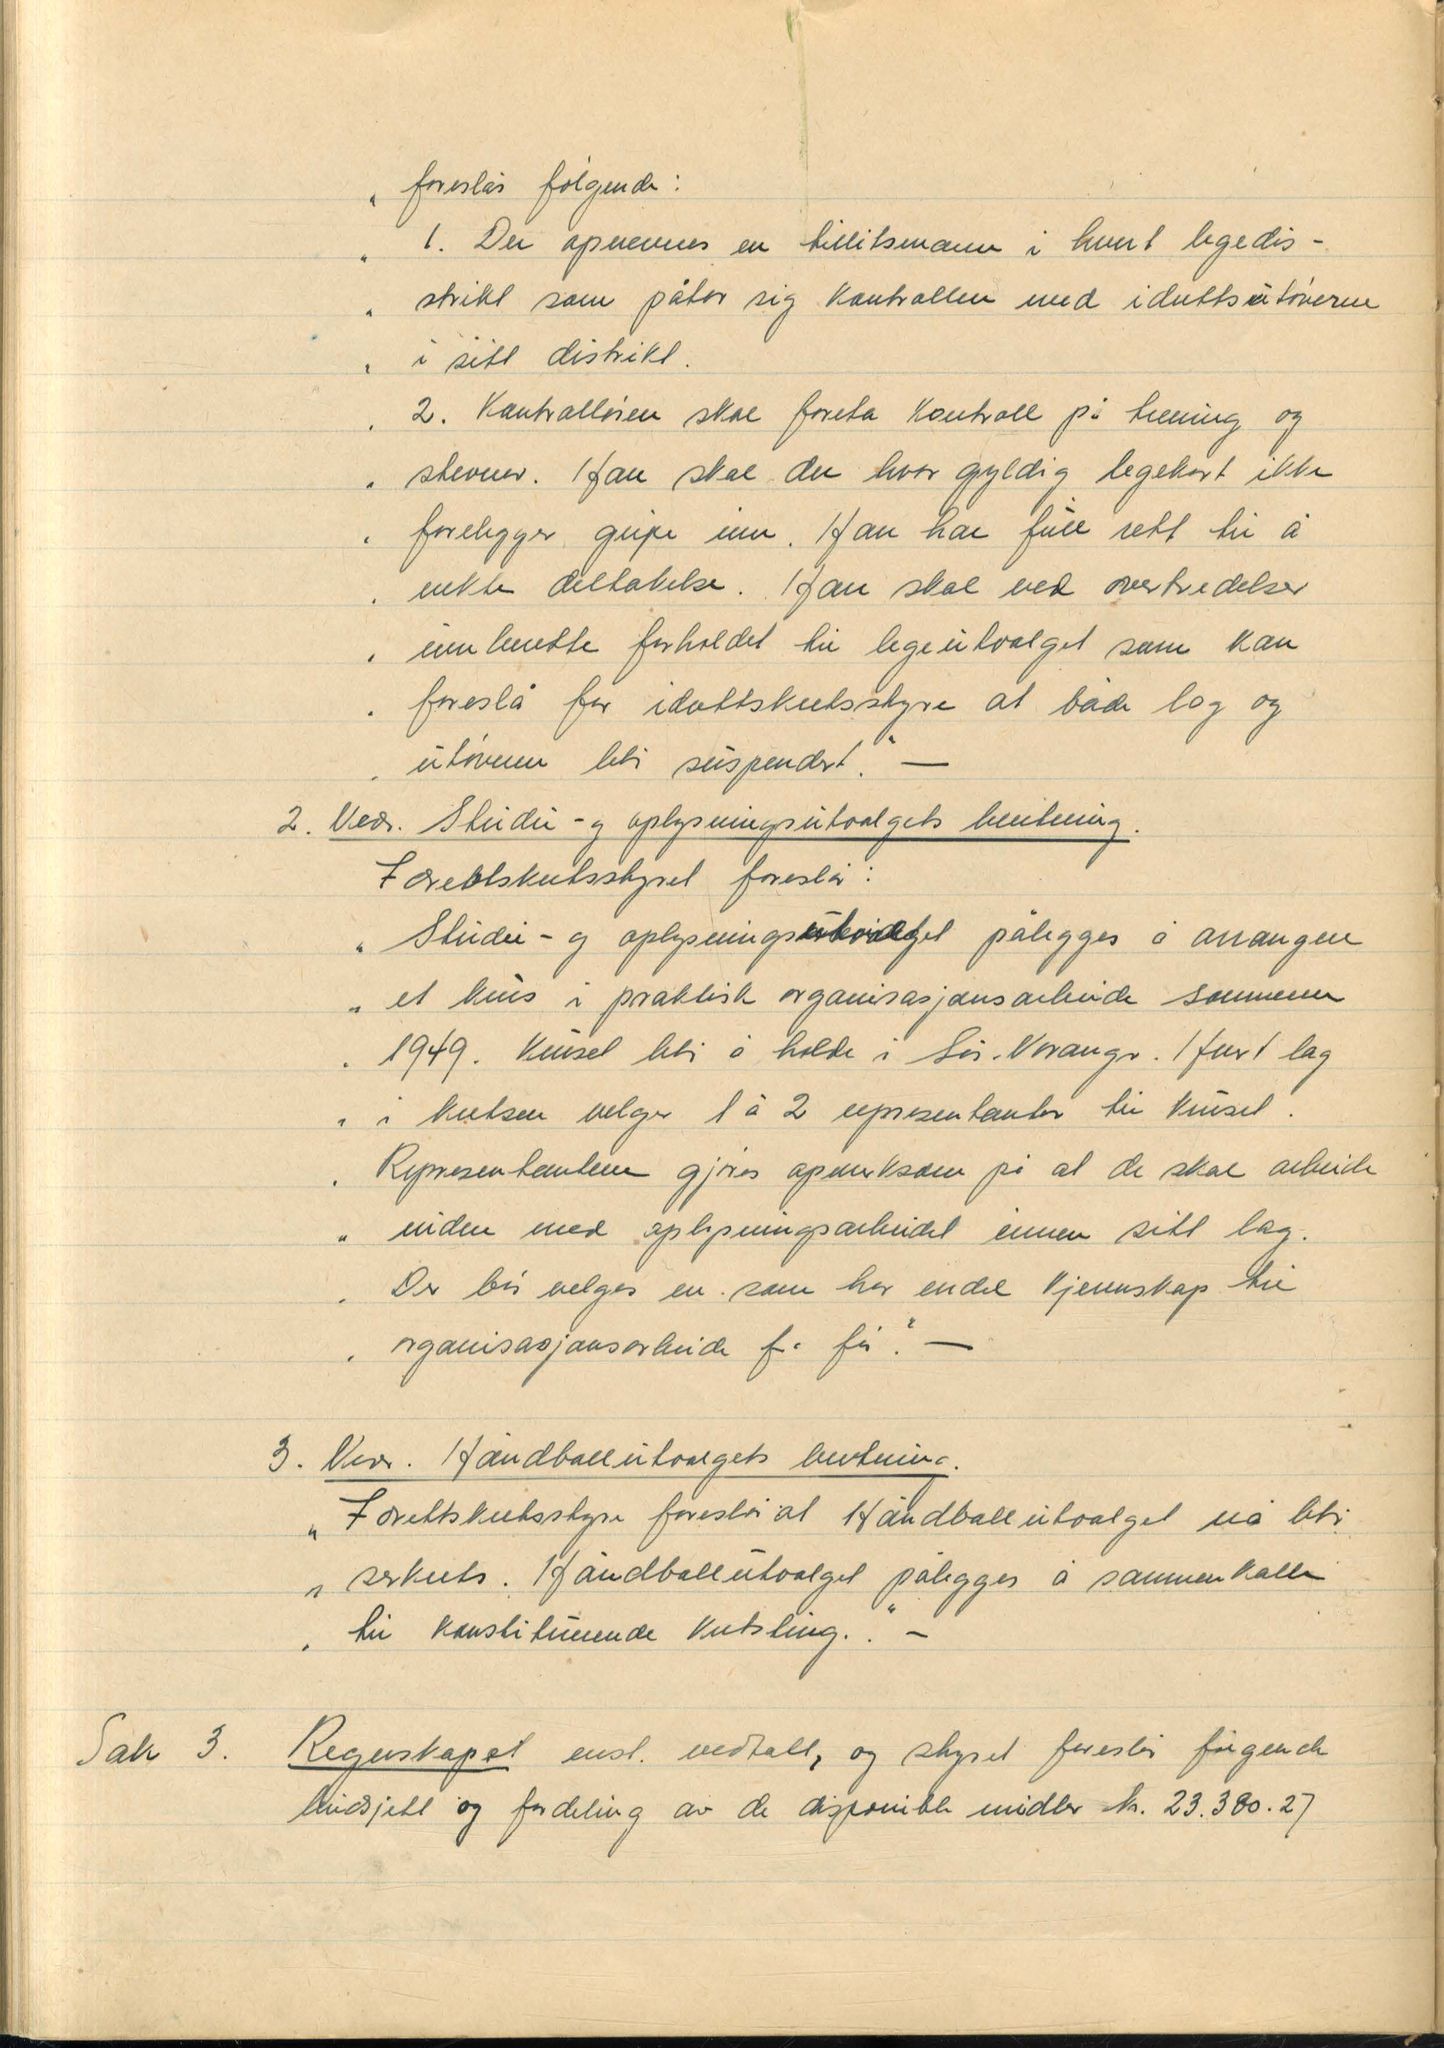 " foreslås følgende:
" 1. Der opnevnes en tillitsmann i hvert legedis-
" strikt som påtar sig kontrollen med idrettsutøverne
" i sitt distrikt.
" 2. Kontrolløren skal foreta kontroll på trening og
" stevner. Han skal der hvor gyldig legekort ikke
" forelegger gripe inn. Han har full rett til å
" nekte deltakelse. Han skal ved overtredelser
" innberette forholdet til legeutvalget som kan
" foreslå for idrettskretsstyre at både lag og
" utøveren blir suspendert." —
2. Vedr. Studie- og oplysningsutvalgets beretning.
Idrettskretsstyret foreslår:
" Studie- og oplysningsutvalget pålegges å arrangere
" et kurs i praktisk organisasjonsarbeide sommeren
" 1949. Kurset blir å holde i Sør-Varanger. Hvert lag
" i kretsen velger 1 à 2 representanter til kurset.
" Representantene gjøres opmerksom på at de skal arbeide
" videre med oplysningsarbeidet innen sitt lag.
" Der bør velges en som har endel kjennskap til
" organisasjonsarbeide fra før." —
3. Vedr. Håndballutvalgets beretning.
" Idrettskretsstyre foreslår at Håndballutvalget nå blir
" særkrets. Håndballutvalget pålegges å sammenkalle
" til konstituerende kretsting." —
Sak 3. Regnskapet enst. vedtatt, og styret foreslår følgende
budsjett og fordeling av de disponible midler kr. 23.380.27